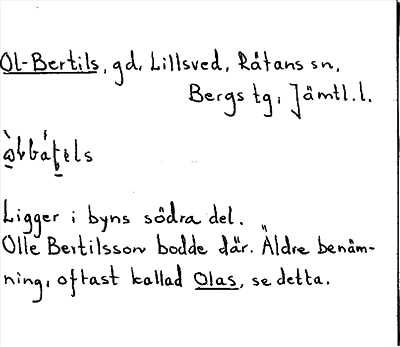 Ol-Bertils, gd, Lillsved, Råtans sn,
Bergs tg, Jämtl. l.
Ligger i byns södra del.
Olle Bertilsson bodde där. Äldre benäm-
ning, oftast kallad Olas, se detta.